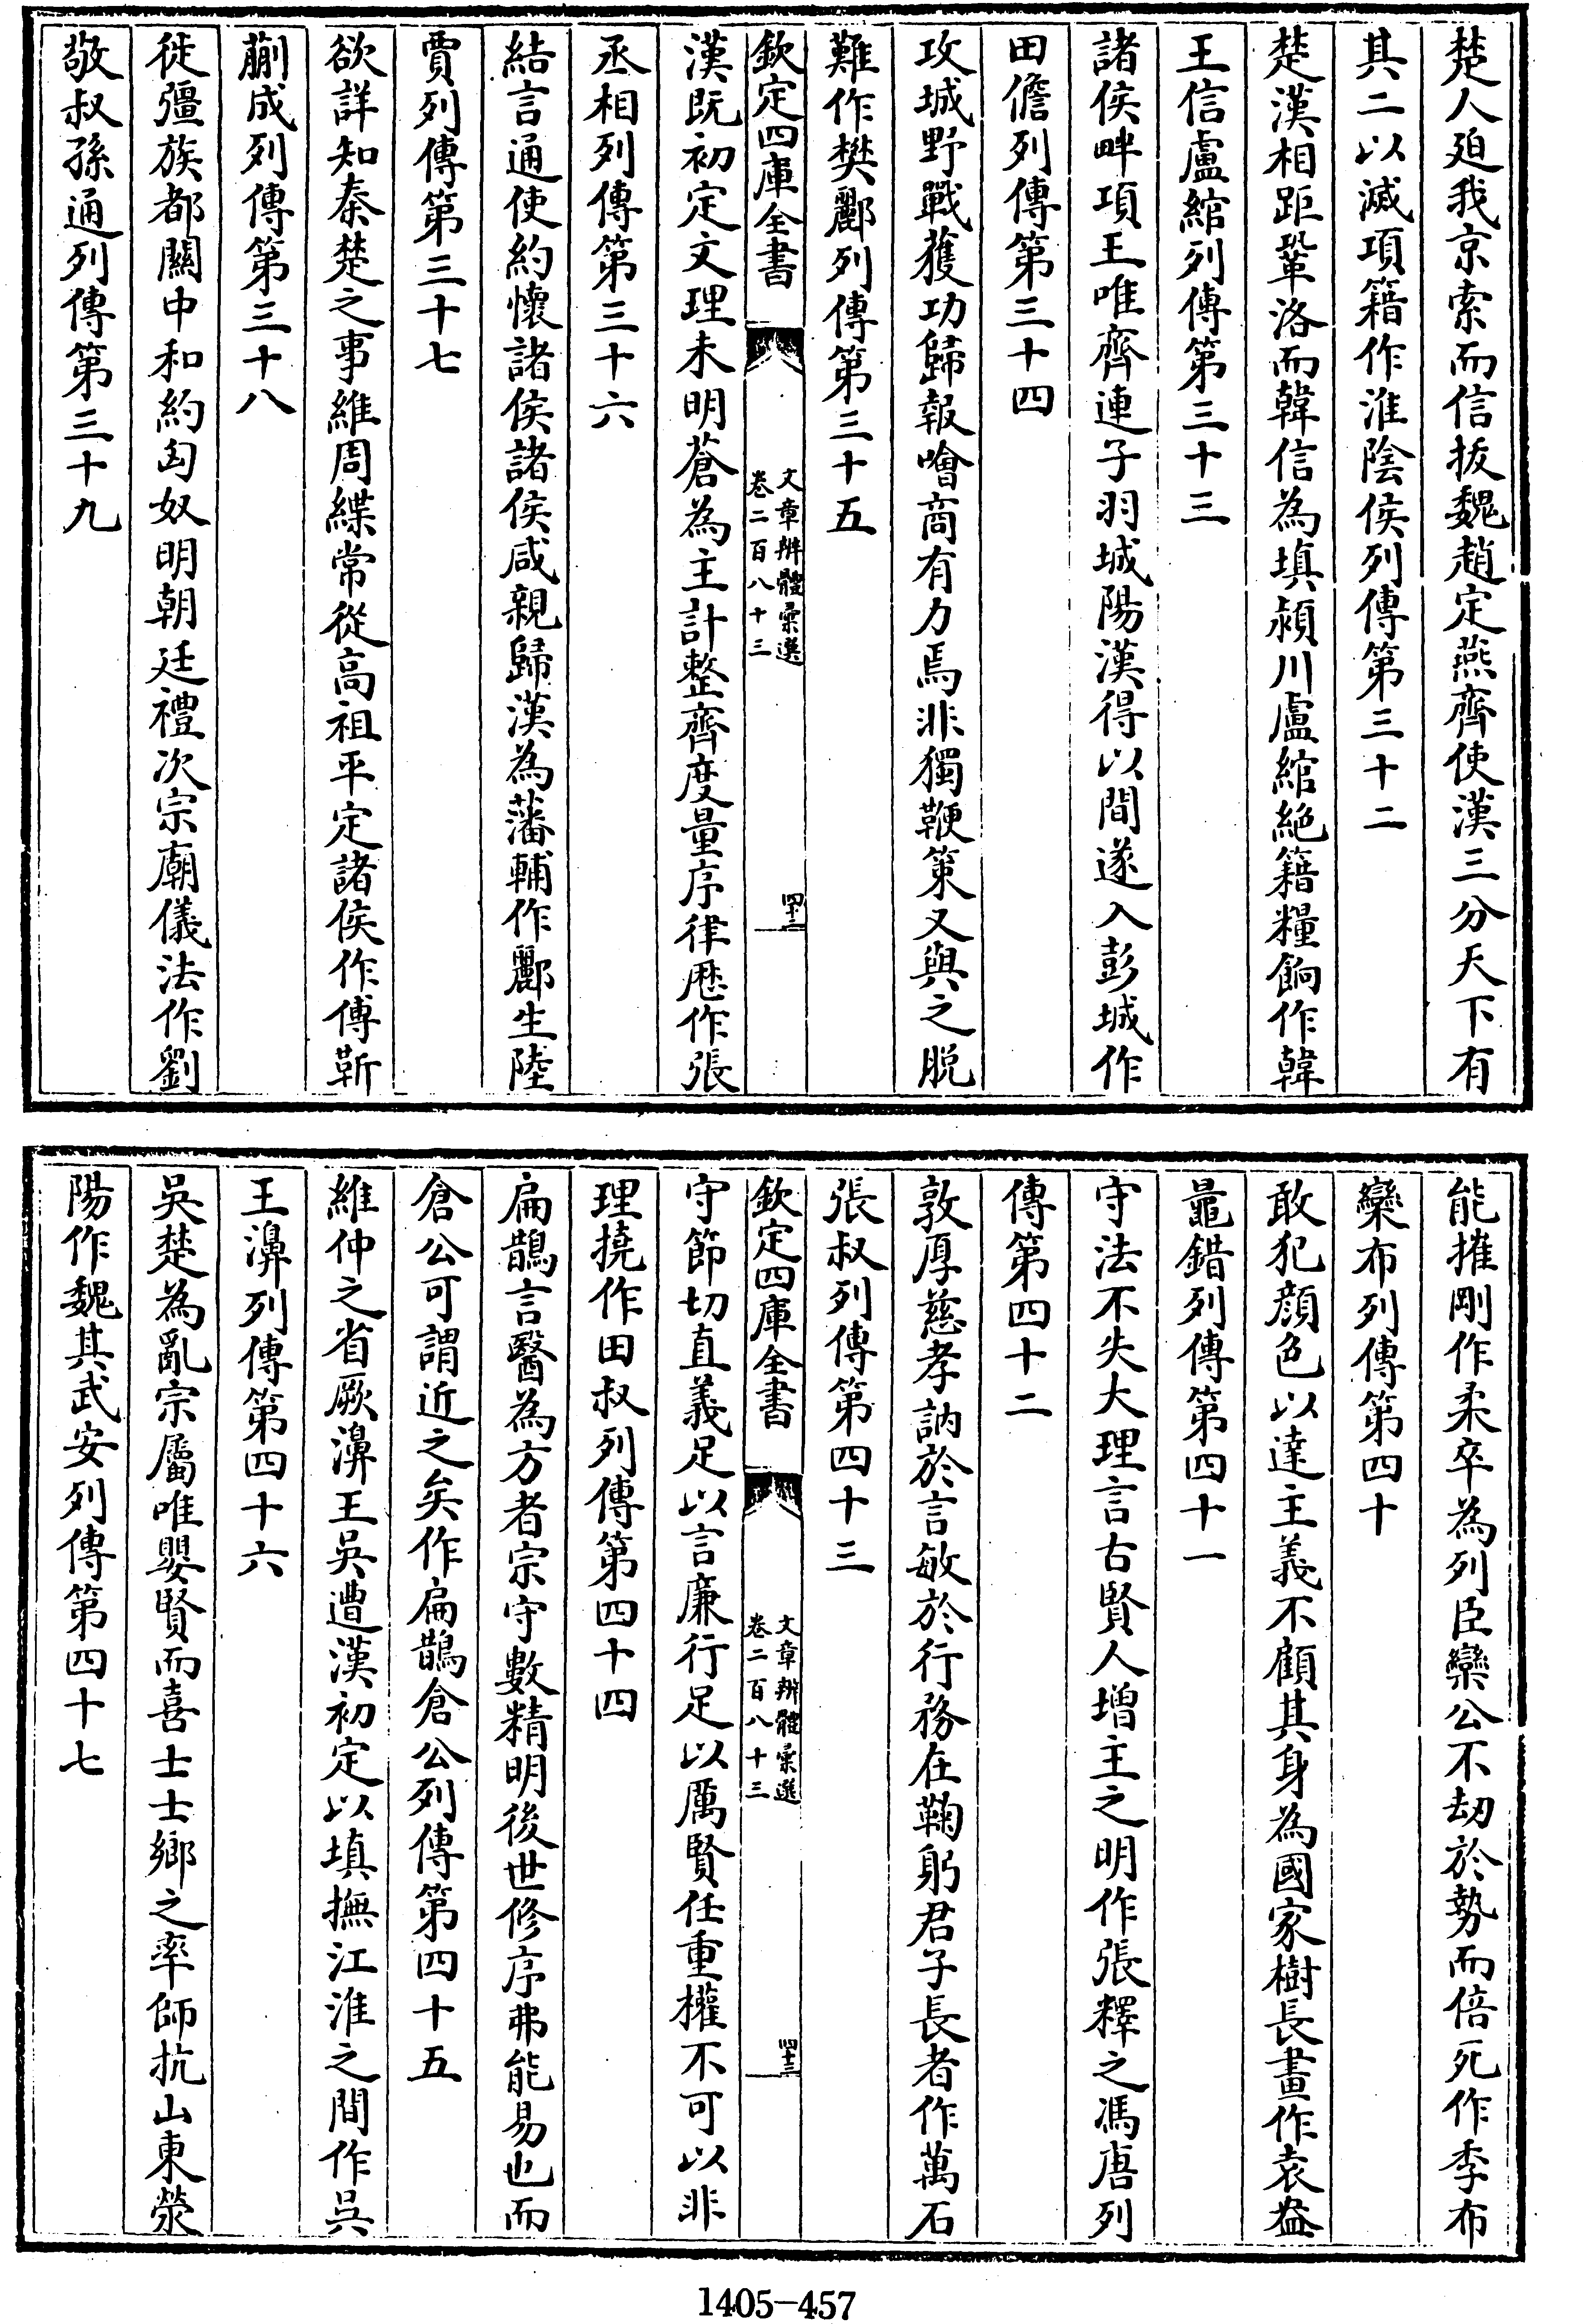 楚人迫我京索而信拔魏趙定燕齊使漢三分天下有
其二以滅項籍作淮陰侯列傳第三十二
楚漢相距鞏洛而韓信為填潁川盧綰絶籍糧餉作韓
王信盧綰列傳第三十三
諸侯畔項王唯齊連子羽城陽漢得以間遂入彭城作
田儋列傳第三十四
攻城野戰獲功歸報噲商有力焉非獨鞭策又與之脱
難作樊酈列傳第三十五
欽定四庫全書
文章辨體彙選
卷二百八十三
四十二
漢既初定文理未明蒼為主計整齊度量序律厯作張
丞相列傳第三十六
結言通使約懷諸侯諸侯咸親歸漢為藩輔作酈生陸
賈列傳第三十七
欲詳知秦楚之事維周緤常從高祖平定諸侯作傅靳
蒯成列傳第三十八
徙彊族都關中和約匈奴明朝廷禮次宗廟儀法作劉
敬叔孫通列傳第三十九
能摧剛作柔卒為列臣欒公不劫於勢而倍死作季布
欒布列傳第四十
敢犯顔色以達主義不顧其身為國家樹長畫作袁盎
鼂錯列傳第四十一
守法不失大理言古賢人增主之明作張釋之馮唐列
傳第四十二
敦厚慈孝訥於言敏於行務在鞠躬君子長者作萬石
張叔列傳第四十三
欽定四庫全書
文章辨體彙選
卷二百八十三
四十三
守節切直義足以言廉行足以厲賢任重權不可以非
理撓作田叔列傳第四十四
扁鵲言醫為方者宗守數精明後世修序弗能易也而
倉公可謂近之矣作扁鵲倉公列傳第四十五
維仲之省厥濞王吳遭漢初定以填撫江淮之間作吳
王濞列傳第四十六
吳楚為亂宗屬唯嬰賢而喜士士鄉之率師抗山東滎
陽作魏其武安列傳第四十七
1405-457